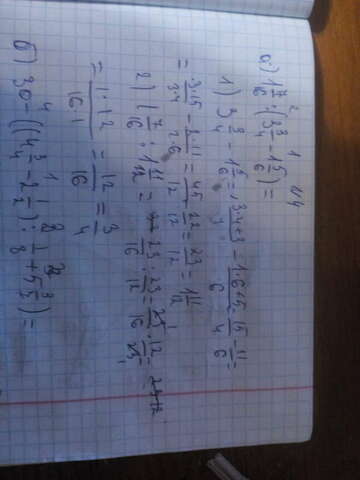 1/4
а) 1 7/16 : (3 3/4 - 1 5/6) =
1) 3 3/4 - 1 5/6 = 3·4+3/4 - 1·6+5/6 = 15/4 - 11/6 =
= 3·15/3·4 - 2·11/2·6 = 45/12 - 22/12 = 23/12 = 1 11/12
2) 1 7/16 : 1 11/12 = 23/16 : 23/12 = 23/16 · 12/23 =
= 1·12/16·1 = 12/16 = 3/4
б) 30 - ((4 3/4 - 2 1/2) : 1/8 + 5 2/3) =